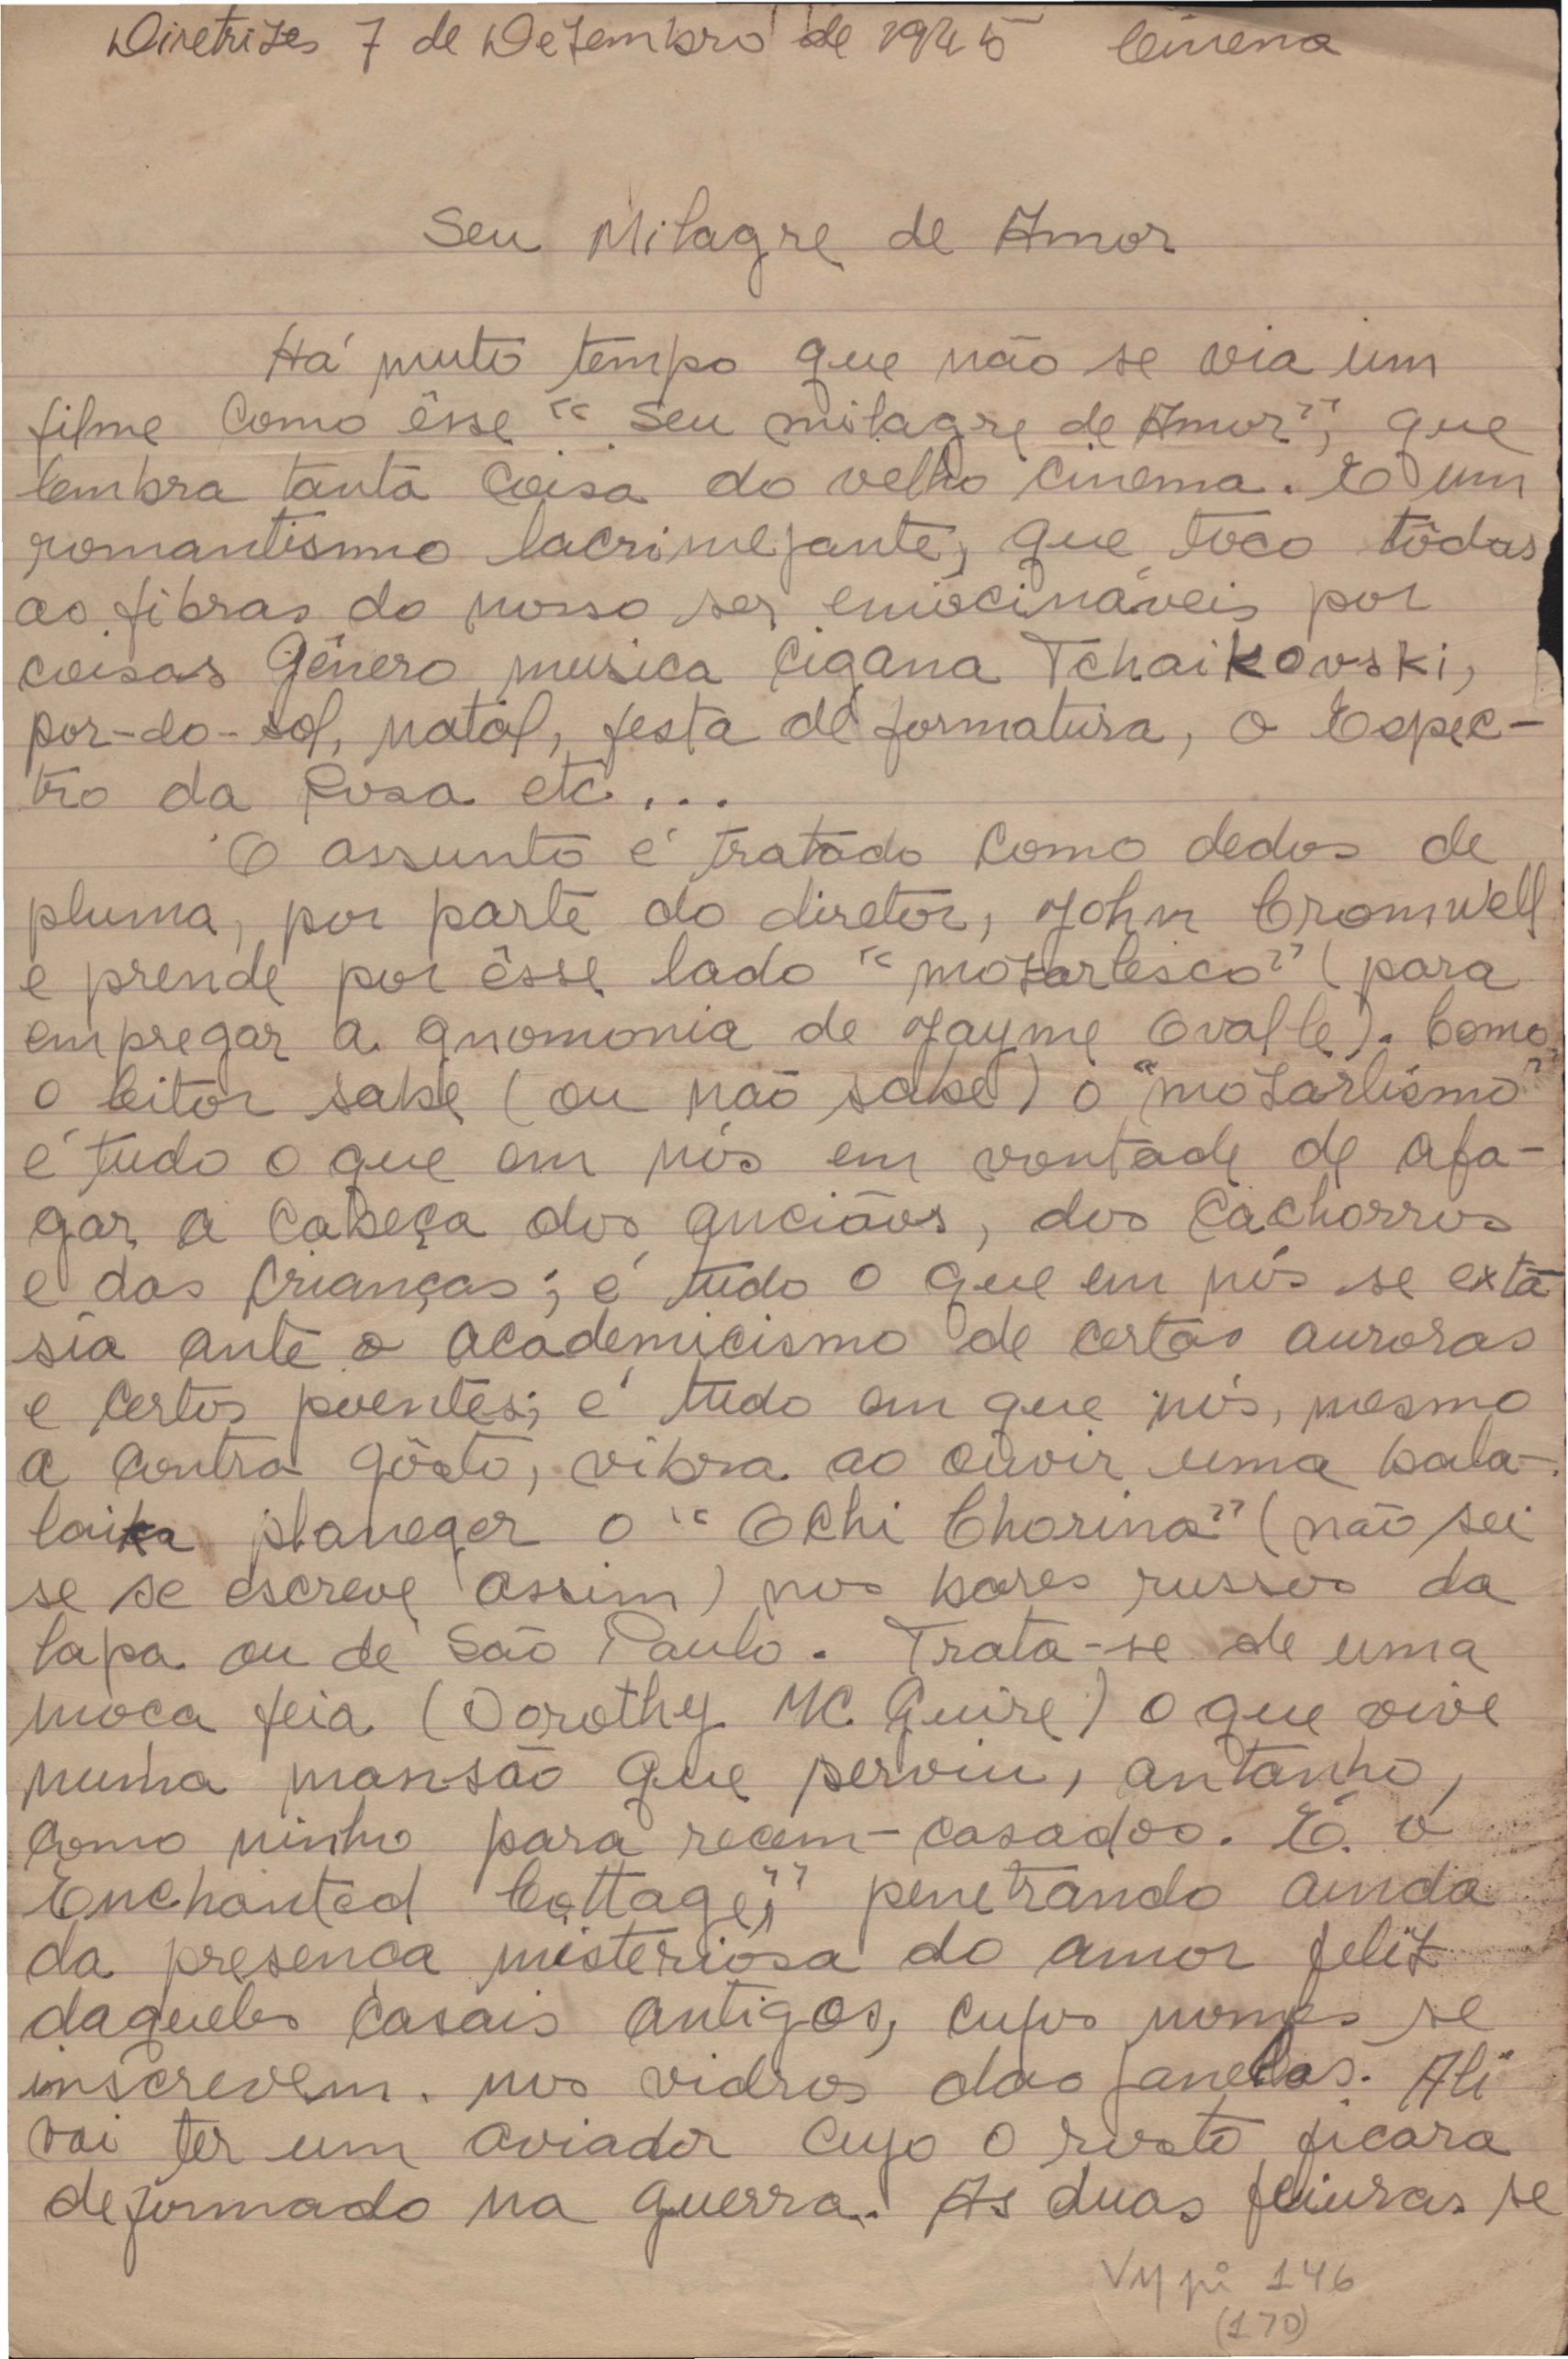 Diretrizes 7 de Dezembro de 1945 Cinema
Seu Milagre de Amor
Há muito tempo que não se via um
filme como êsse "Seu milagre de Amor", que
lembra tanta coisa do velho cinema. É um
romantismo lacrimejante, que toco tôdas
as fibras do nosso ser emocináveis por
coisas Gênero musica cigana Tchaikovski,
por-do-sol, natal, festa de formatura, o Espec-
tro da Rosa etc...
O assunto é tratado como dedos de
pluma, por parte do diretor, John Cromwell
e prende por êsse lado "mozartesco" (para
empregar a gnomonia de Jayme Ovalle). Como
o leitor sabe (ou não sabe) o "mozartismo"
é tudo o que em nós em vontade de afa-
gar a cabeça dos anciãos, dos cachorros
e das crianças; é tudo o que em nós se exta
sia ante o academicismo de certas auroras
e certos poentes; é tudo em que nós, mesmo
a contra gôsto, vibra ao ouvir uma bala-
laika planeger o "Ochi Chorina" (não sei
se se escreve assim) nos bares russos da
Lapa ou de São Paulo. Trata-se de uma
moca feia (Dorothy Mc Guire) o que vive
numa mansão que serviu, antanho,
como ninho para recem-casados. É o
Enchanted Cottage," penetrando ainda
da presenca misteriosa do amor feliz
daqueles casais antigos, cujos nomes se
inscrevem. nos vidros das janelas. Ali
vai ter um aviador cujo o rosto ficara
deformado na guerra. As duas feiuras se
VM pi 146
(170)